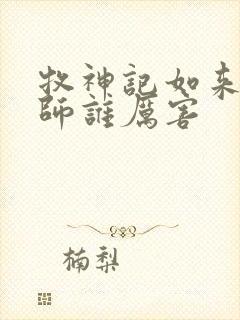 牧神記如來
師誰厲害
楠梨